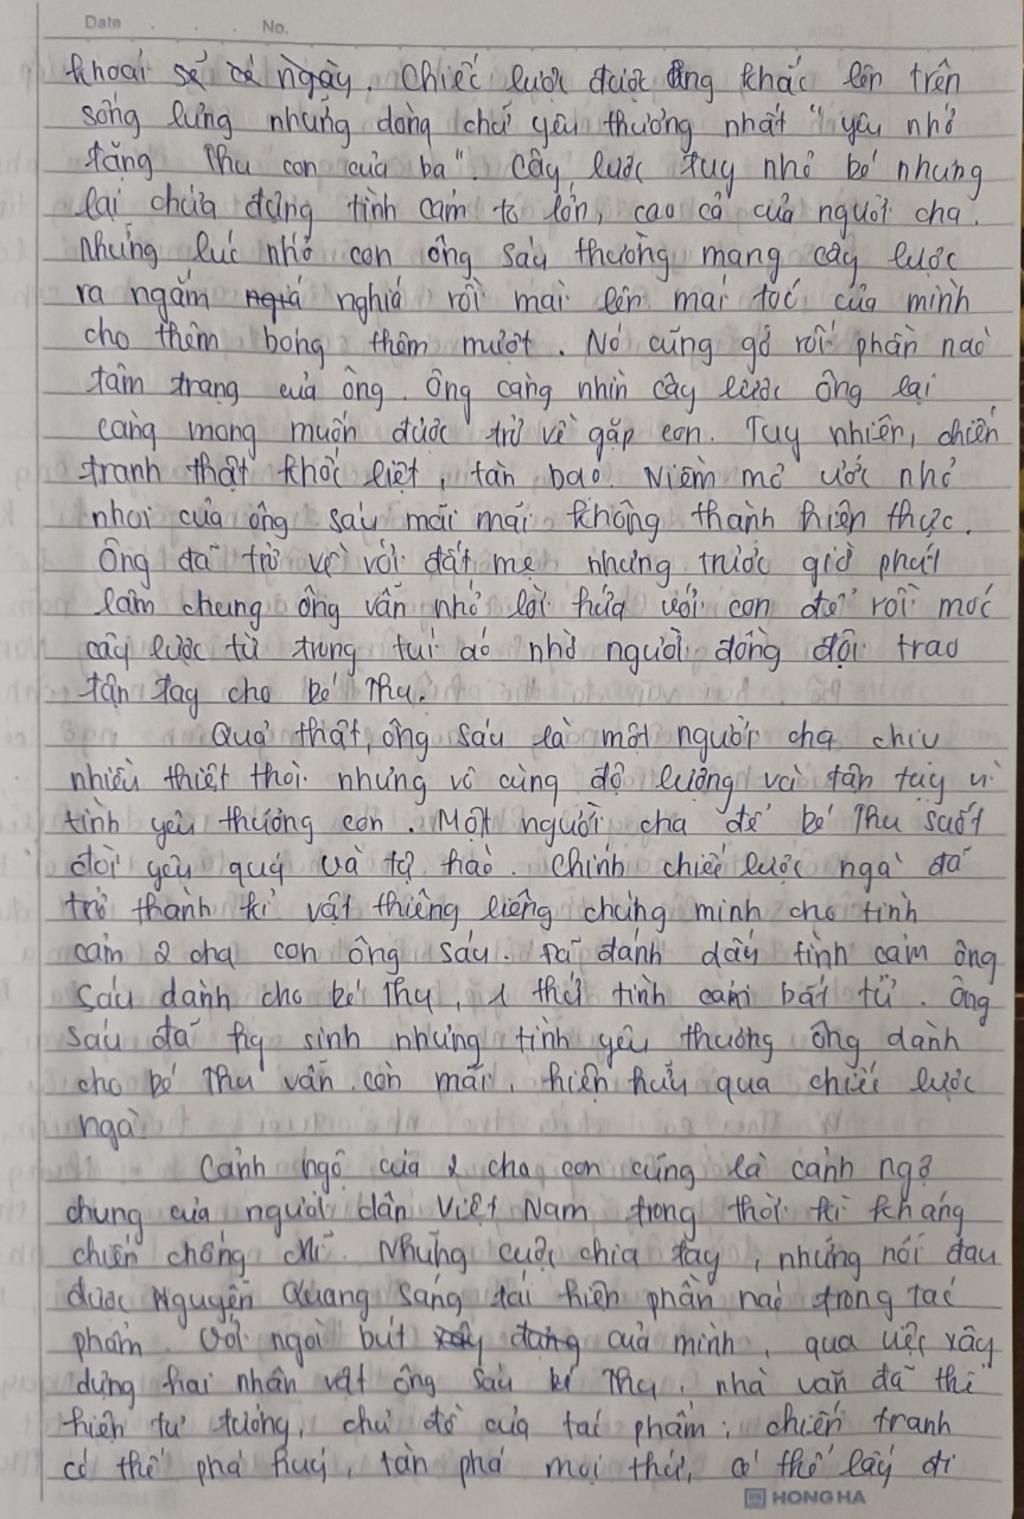 Date No.
khoái sẽ cả ngày. Chiếc lược được ông khắc lên trên
sống lưng những dòng chữ yêu thương nhất "yêu nhớ
tặng Thu con của ba". Cây lược tuy nhỏ bé nhưng
lại chứa đựng tình cảm to lớn, cao cả của người cha.
Những lúc nhớ con ông Sáu thường mang cây lược
ra ngắm nghía rồi mài lên mái tóc của mình
cho thêm bóng thêm mượt. Nó cũng gỡ rối phần nào
tâm trạng của ông. Ông càng nhìn cây lược ông lại
càng mong muốn được trở về gặp con. Tuy nhiên, chiến
tranh thật khốc liệt, tàn bạo. Niềm mơ ước nhỏ
nhoi của ông Sáu mãi mãi không thành hiện thực.
Ông đã trở về với đất mẹ nhưng trước giờ phút
lâm chung ông vẫn nhớ lời hứa với con để rồi móc
cây lược từ trong túi áo nhờ người đồng đội trao
tận tay cho bé Thu.
Quả thật, ông Sáu là một người cha chịu
nhiều thiệt thòi nhưng vô cùng độ lượng và tận tụy vì
tình yêu thương con. Một người cha để bé Thu suốt
đời yêu quý và tự hào. Chính chiếc lược ngà đã
trở thành kỉ vật thiêng liêng chứng minh cho tình
cảm 2 cha con ông Sáu. Đã đánh dấu tình cảm ông
Sáu dành cho bé Thu, 1 thứ tình cảm bất tử. Ông
Sáu đã hy sinh nhưng tình yêu thương ông dành
cho bé Thu vẫn còn mãi, hiện hữu qua chiếc lược
ngà.
Cảnh ngộ của 2 cha con cũng là cảnh ngộ
chung của người dân Việt Nam trong thời kì kháng
chiến chống Mĩ. Những cuộc chia tay, những nỗi đau
được Nguyễn Quang Sáng tái hiện phần nào trong tác
phẩm. Với ngòi bút của mình, qua việc xây
dựng hai nhân vật ông Sáu bé Thu, nhà văn đã thể
hiện tư tưởng, chủ đề của tác phẩm: chiến tranh
có thể phá huỷ, tàn phá mọi thứ, có thể lấy đi
HONG HA